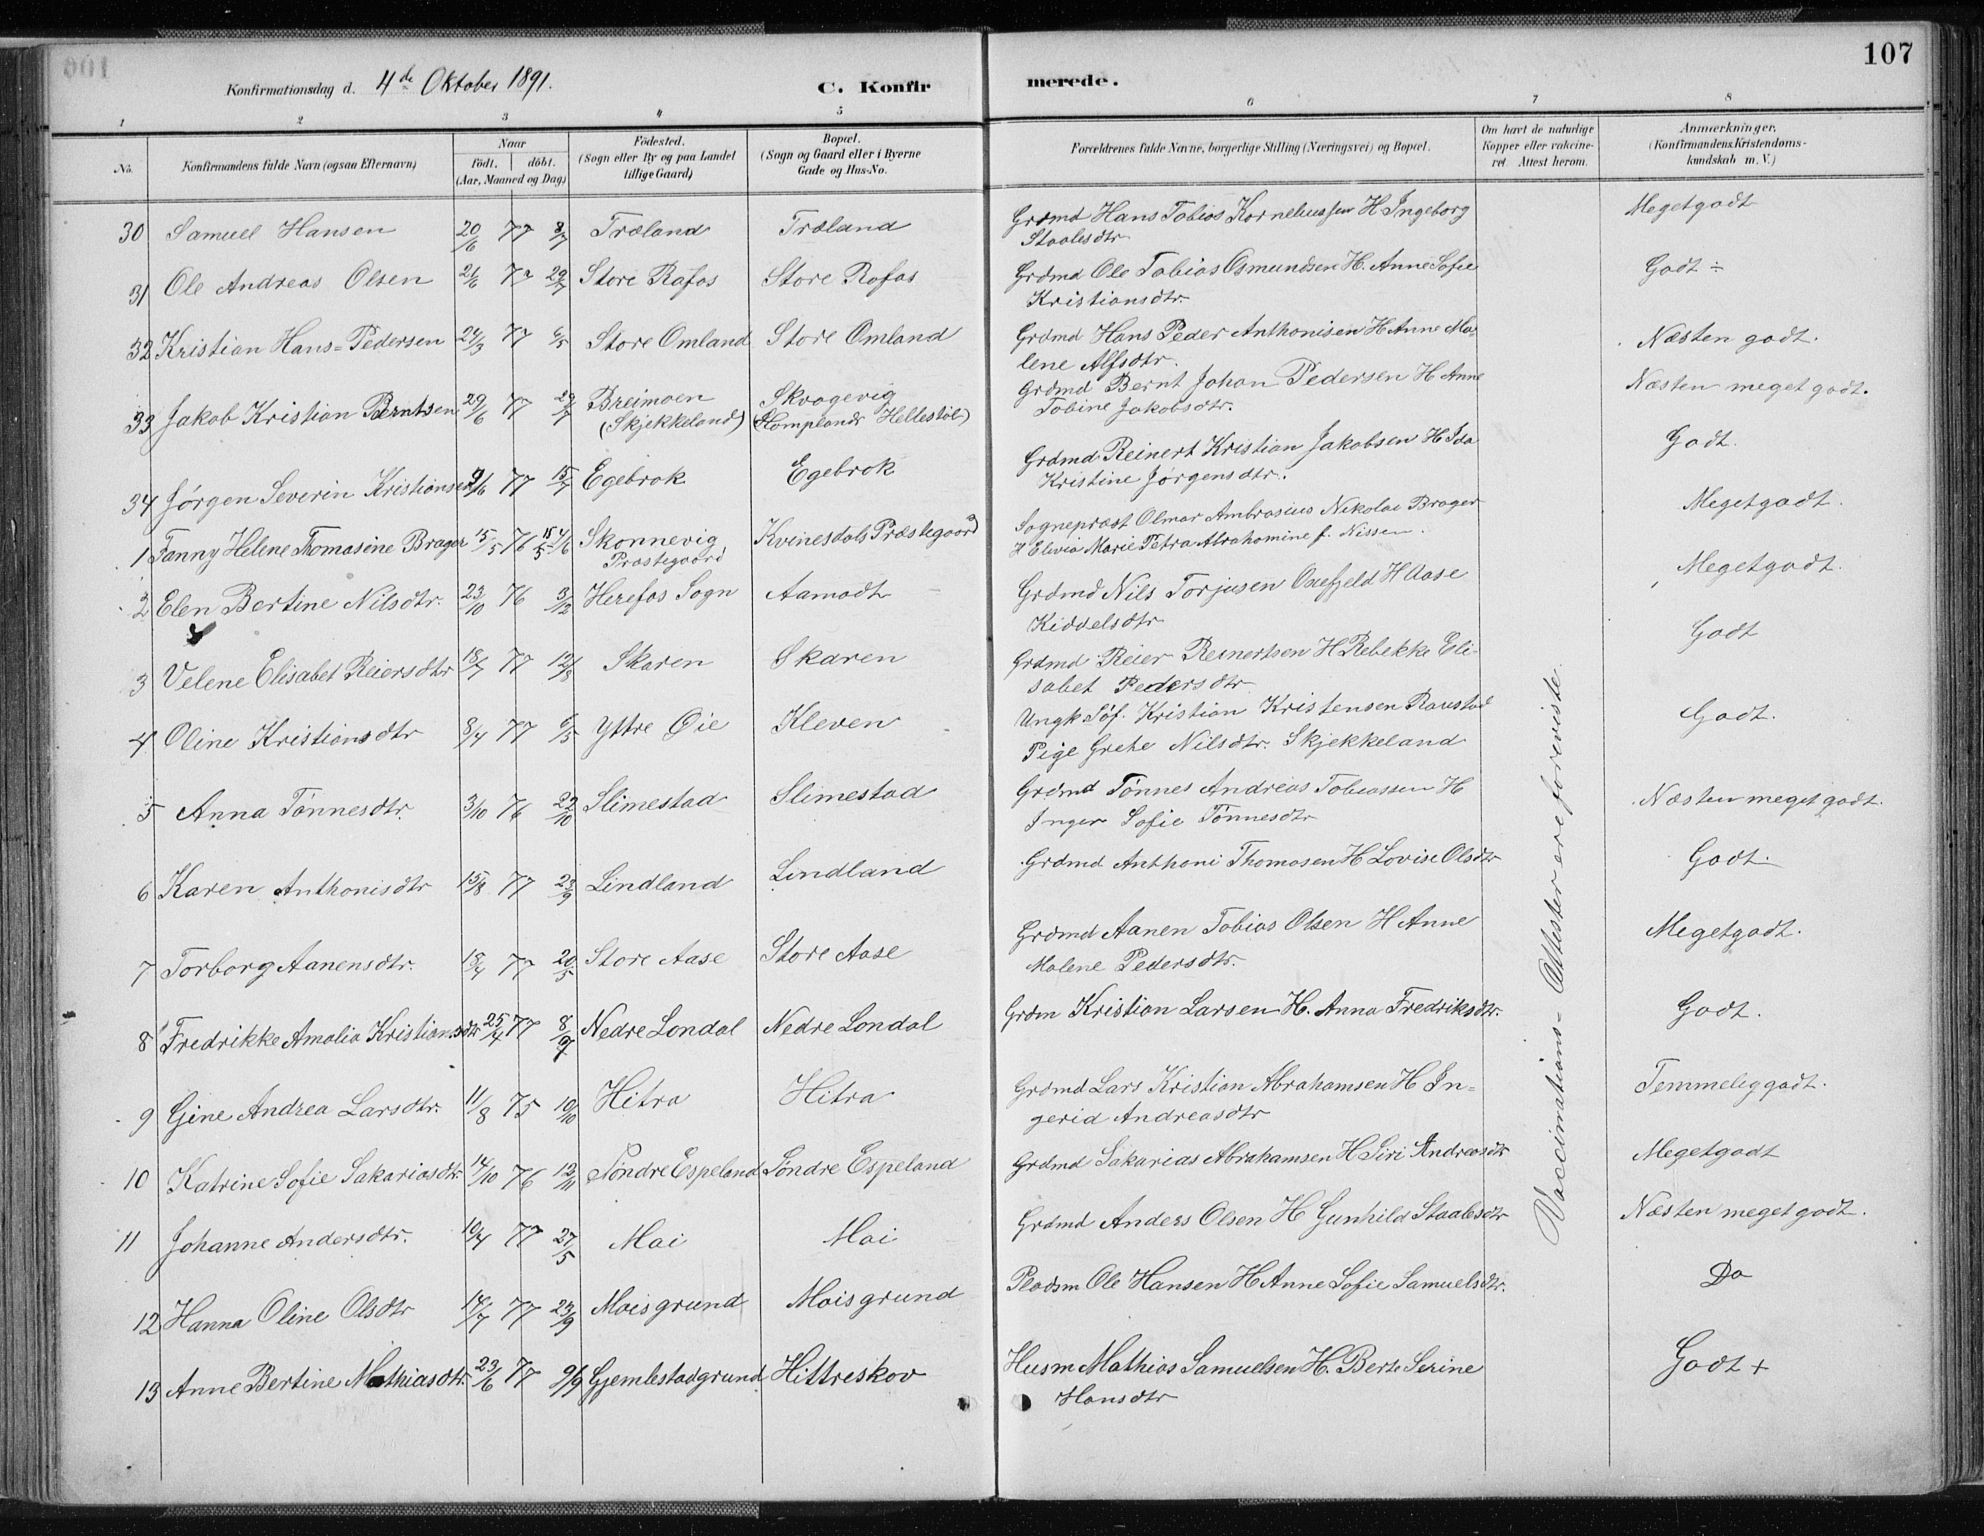 107
Konfirmationsdag d. 4de Oktober 1891.
C. Konfirmerede.
1 2 3 4 5 6 7 8
No.
Konfirmandens fulde Navn (ogsaa Efternavn)
Naar
födt. | döbt.
(Aar, Maaned og Dag)
Födested.
(Sogn eller By og paa Landet
tillige Gaard)
Bopæl.
(Sogn og Gaard eller i Byerne
Gade og Hus-No.
Forældrenes fulde Navne, borgerlige Stilling (Næringsvei) og Bopæl.
Om havt de naturlige
Kopper eller vakcine-
ret. Attest herom.
Anmærkninger,
(Konfirmandens Kristendoms-
kundskab m. V.)
30 Samuel Hansen 20/6 77 8/7 Træland Træland Grdmd Hans Tobias Korneliussen H Ingeborg Megetgodt
Staalesdtr
31 Ole Andreas Olsen 21/6 77 29/7 Store Rafos Store Rafos Grdmd Ole Tobias Osmundsen H. Anne Sofie Godt ÷
Kristiansdtr.
32 Kristian Hans=Pedersen 24/3 77 6/5 Store Omland Store Omland Grdmd Hans Peder Anthonisen H Anne Ma- Næsten godt.
lene Alfsdtr.
33 Jakob Kristian Berntsen 29/6 77 29/7 Breimoen Skvagevig Grdmd Bernt Johan Pedersen H Anne Næsten meget godt.
(Skjekkeland) (Homplands Hellestøl) Tobine Jakobsdtr.
34 Jørgen Severin Kristiansen 9/6 77 15/7 Egebrok Egebrok Grdmd Reinert Kristian Jakobsen H Ida Godt.
Kristine Jørgensdtr.
1 Fanny Helene Thomasine Brager 15/5 76 4/6 Skonnevig Kvinesdals Præstegaard Sognepræst Olmar Ambrosius Nikolai Brager Megetgodt.
Præstegaard H Elevia Marie Petra Abrahamine f. Nissen.
2 Elen Bertine Nilsdtr. 23/10 76 3/12 Herefos Sogn Aamodt Grdmd Nils Torjusen Osefjeld H Aase Megetgodt.
Kiddelsdtr
3 Velene Elisabet Reiersdtr 18/7 77 12/8 Skaren Skaren Grdmd Reier Reinertsen H Rebekke Eli- Godt
sabet Pedersdtr
4 Oline Kristiansdtr 8/4 77 6/5 Yttre Øie Kleven Ungk Søf. Kristian Kristensen Raustad Godt.
Pige Grehe Nilsdtr. Skjekkeland
5 Anna Tønnesdtr. 3/10 76 22/10 Slimestad Slimestad Grdmd Tønnes Andreas Tobiassen H Næsten meget godt.
Inger Sofie Tønnesdtr
6 Karen Anthonisdtr 15/8 77 23/9 Lindland Lindland Grdmd Anthoni Thomasen H Lovise Olsdtr Godt.
7 Torborg Aanensdtr. 18/4 77 20/5 Store Aase Store Aase Grdmd Aanen Tobias Olsen H Anne Megetgodt.
Malene Pedersdtr.
8 Fredrikke Amalia Kristiansdtr 25/4 77 8/9 Nedre Londal Nedre Londal Grdm Kristian Larsen H. Anna Fredriksdtr. Godt.
9 Gine Andrea Larsdtr. 11/8 75 10/10 Hitra Hitra Grdmd Lars Kristian Abrahamsen H In- Temmeliggodt.
gerid Andreasdtr
10 Katrine Sofie Sakariasdtr. 14/10 76 12/11 Søndre Espeland Søndre Espeland Grdmd Sakarias Abrahamsen H Siri Andreasdtr Megetgodt
11 Johanne Andersdtr. 10/4 77 27/5 Moi Moi Grdmd Anders Olsen H Gunhild Staalesdtr Næsten meget godt.
12 Hanna Oline Olsdtr 14/7 77 23/9 Moisgrund Moisgrund Pladsm Ole Hansen H Anne Sofie Samuelsdtr. Do
13 Anne Bertine Mathiasdtr. 23/6 77 9/9 Gjemlestadgrund Hittreskov Husm Mathias Samuelsen H. Berte Serine Godt +
Hansdtr
Vaccinations-Attester ere foreviste.